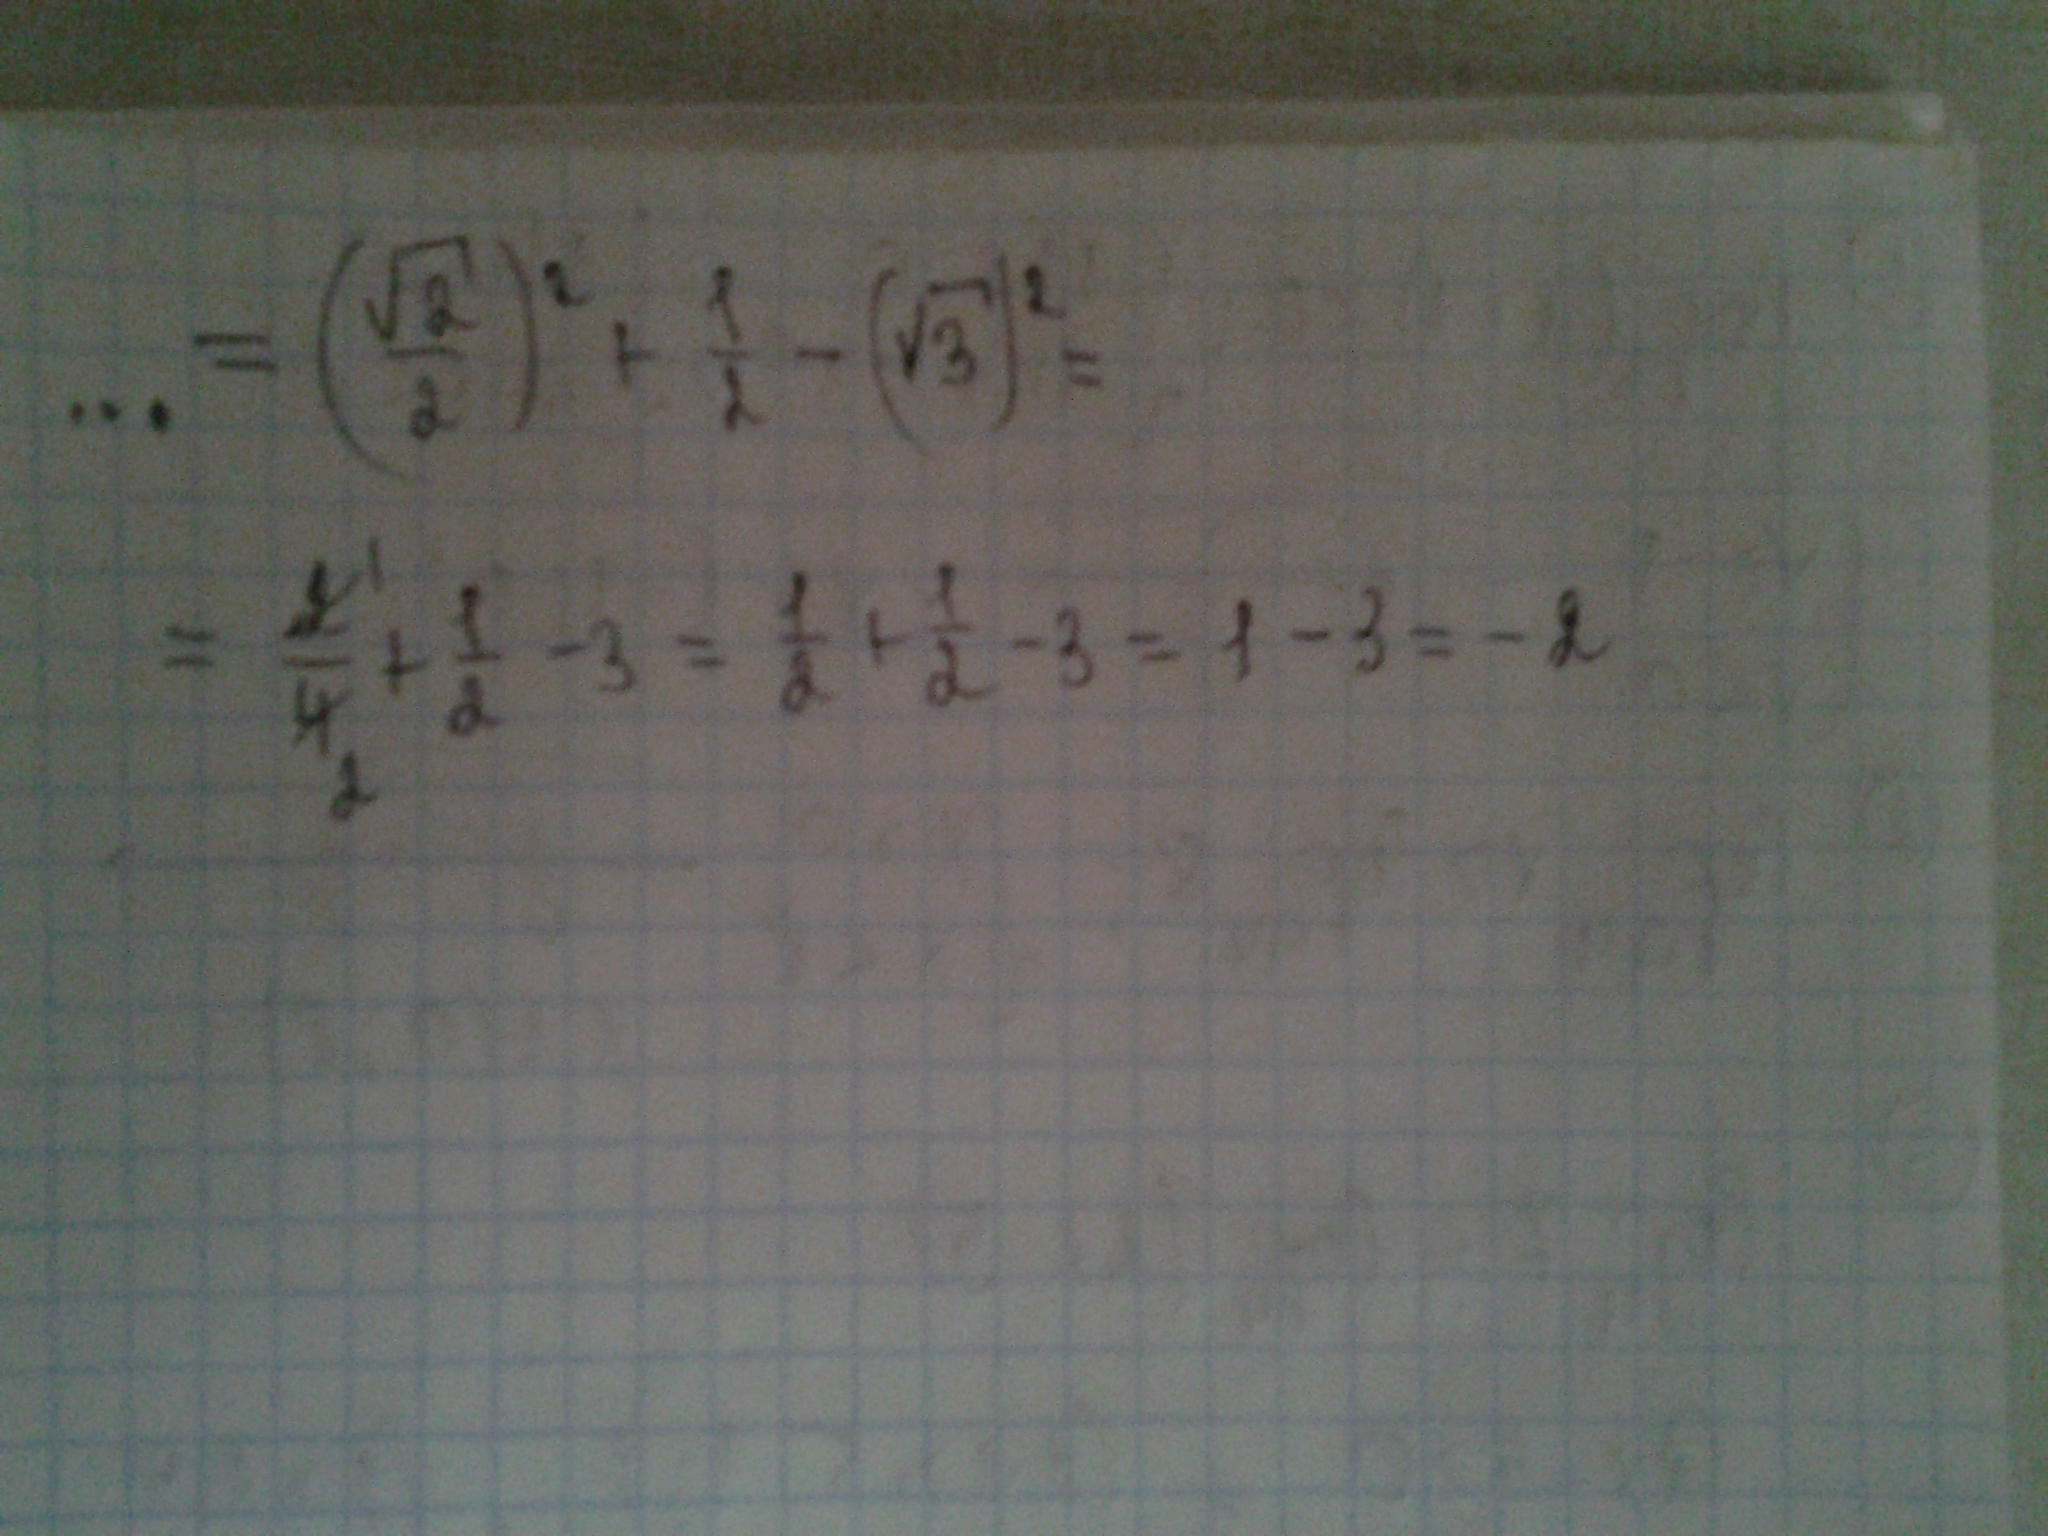 ... = (√2/2)² + 1/2 - (√3)² =
= 2¹/4₂ + 1/2 - 3 = 1/2 + 1/2 - 3 = 1 - 3 = - 2